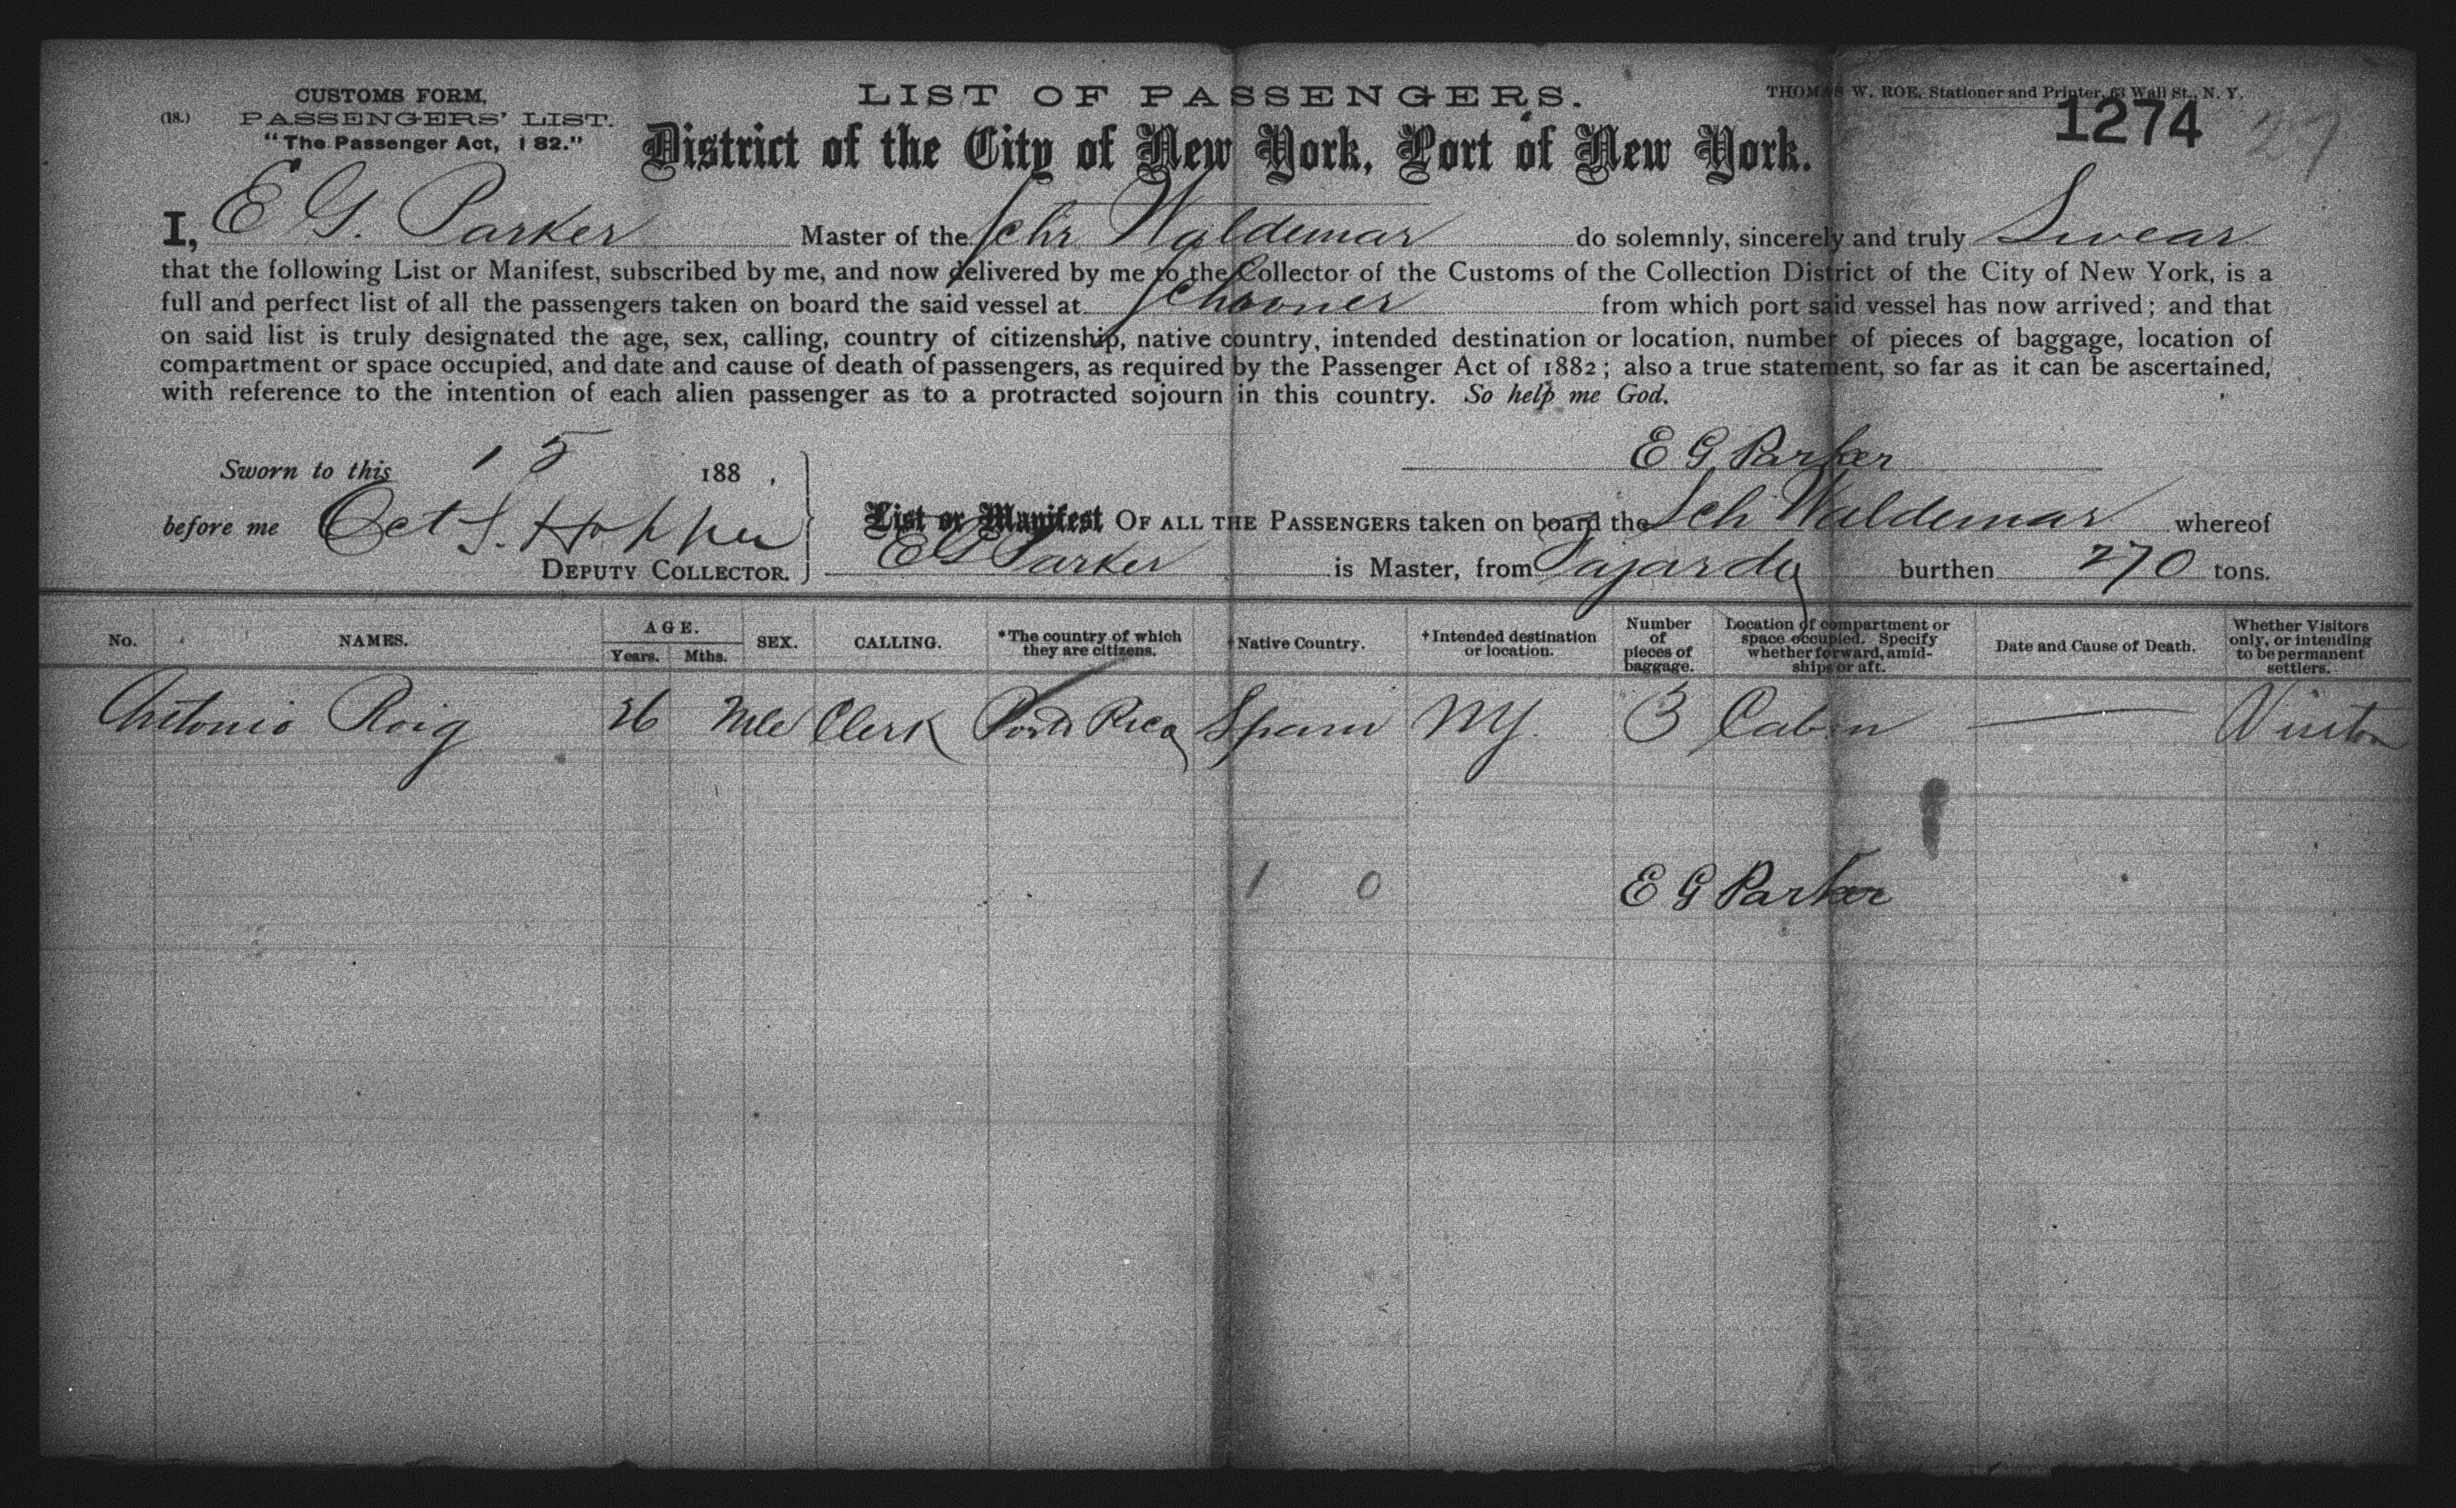 CUSTOMS FORM,
(18.) PASSENGERS' LIST.
"The Passenger Act, 1 82."
LIST OF PASSENGERS.
THOMAS W. ROE, Stationer and Printer, 63 Wall St., N. Y.
1274 27
District of the City of New York, Port of New York.
I, E G. Parker Master of the Schr Waldemar do solemnly, sincerely and truly Swear
that the following List or Manifest, subscribed by me, and now delivered by me to the Collector of the Customs of the Collection District of the City of New York, is a
full and perfect list of all the passengers taken on board the said vessel at Schooner from which port said vessel has now arrived; and that
on said list is truly designated the age, sex, calling, country of citizenship, native country, intended destination or location, number of pieces of baggage, location of
compartment or space occupied, and date and cause of death of passengers, as required by the Passenger Act of 1882; also a true statement, so far as it can be ascertained,
with reference to the intention of each alien passenger as to a protracted sojourn in this country. So help me God.
E G Parker
Sworn to this 15 188 ,
before me Oct S. Hopper
DEPUTY COLLECTOR.
List or Manifest OF ALL THE PASSENGERS taken on board the Sch Waldemar whereof
E G Parker is Master, from Fajardo burthen 270 tons.
No. NAMES. AGE. Years. Mths. SEX. CALLING. *The country of which they are citizens. †Native Country. †Intended destination or location. Number of pieces of baggage. Location of compartment or space occupied. Specify whether forward, amidships or aft. Date and Cause of Death. Whether Visitors only, or intending to be permanent settlers.
Antonio Roig 26 Mle Clerk Porto Rico Spain NY. 3 Cabin — Visitor
1 0 E G Parker